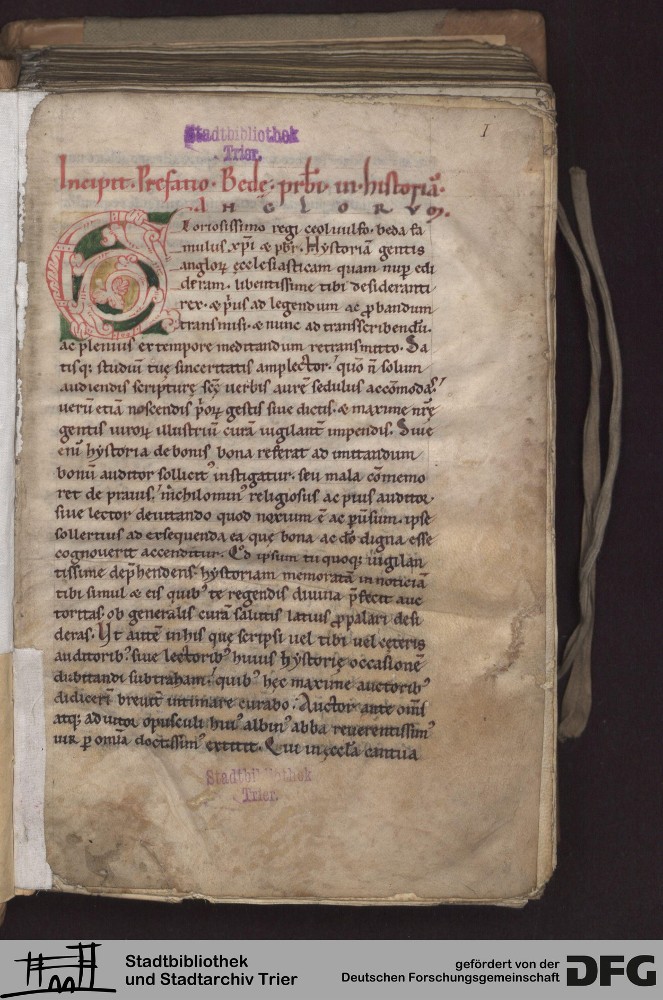 Stadtbibliothek
Trier.
1
Incipit. Prefatio. Bede. prbi. in. historiā.
.ANGLORVM.
Gloriosissimo regi ceoluulfo. beda fa
mulus xpi & pbr. Hystoriam gentis
anglorꝝ ęcclesiasticam quam nup̄ edi
deram. libentissime tibi desideranti
rex. & prius ad legendum ac probandum
transmisi. & nunc ad transscribendū.
ac plenius ex tempore meditandum retransmitto. Sa
tisq; studiū tuę sinceritatis amplector. quo n̄ solum
audiendis scripturę scē uerbis aurē sedulus accōmodas.
uerū etiā noscendis priorꝝ gestis siue dictis. & maxime nrę
gentis uirorꝝ illustriū curā uigilant̄ impendis. Siue
enī hystoria de bonis bona referat ad imitandum
bonū auditor sollicit' instigatur. seu mala cōmemo
ret de prauis. nichilomin' religiosus ac pius auditor
siue lector deuitando quod noxium ē ac puersum. ipse
sollertius ad exsequenda ea quę bona ac dō digna esse
cognouerit accenditur. Qd ipsum tu quoq; uigilan
tissime dep̄hendens. hystoriam memoratā in noticiā
tibi simul & eis quib' te regendis diuina p̄fecit auc
toritas. ob generalis curā salutis latius propalari desi
deras. Ut autē in his quę scripsi uel tibi uel ceteris
auditorib' siue lectorib' huius hystorię occasionē
dubitandi subtraham. quib' hęc maxime auctorib'
didicerī breuit̄ intimare curabo. Auctor ante om̄s
atq; adiutor opusculi hui' albin' abba reuerentissim'
uir p omnia doctissim' extitit. Qui in ęccla cantua
Stadtbibliothek
Trier.
Stadtbibliothek
und Stadtarchiv Trier
gefördert von der
Deutschen Forschungsgemeinschaft
DFG